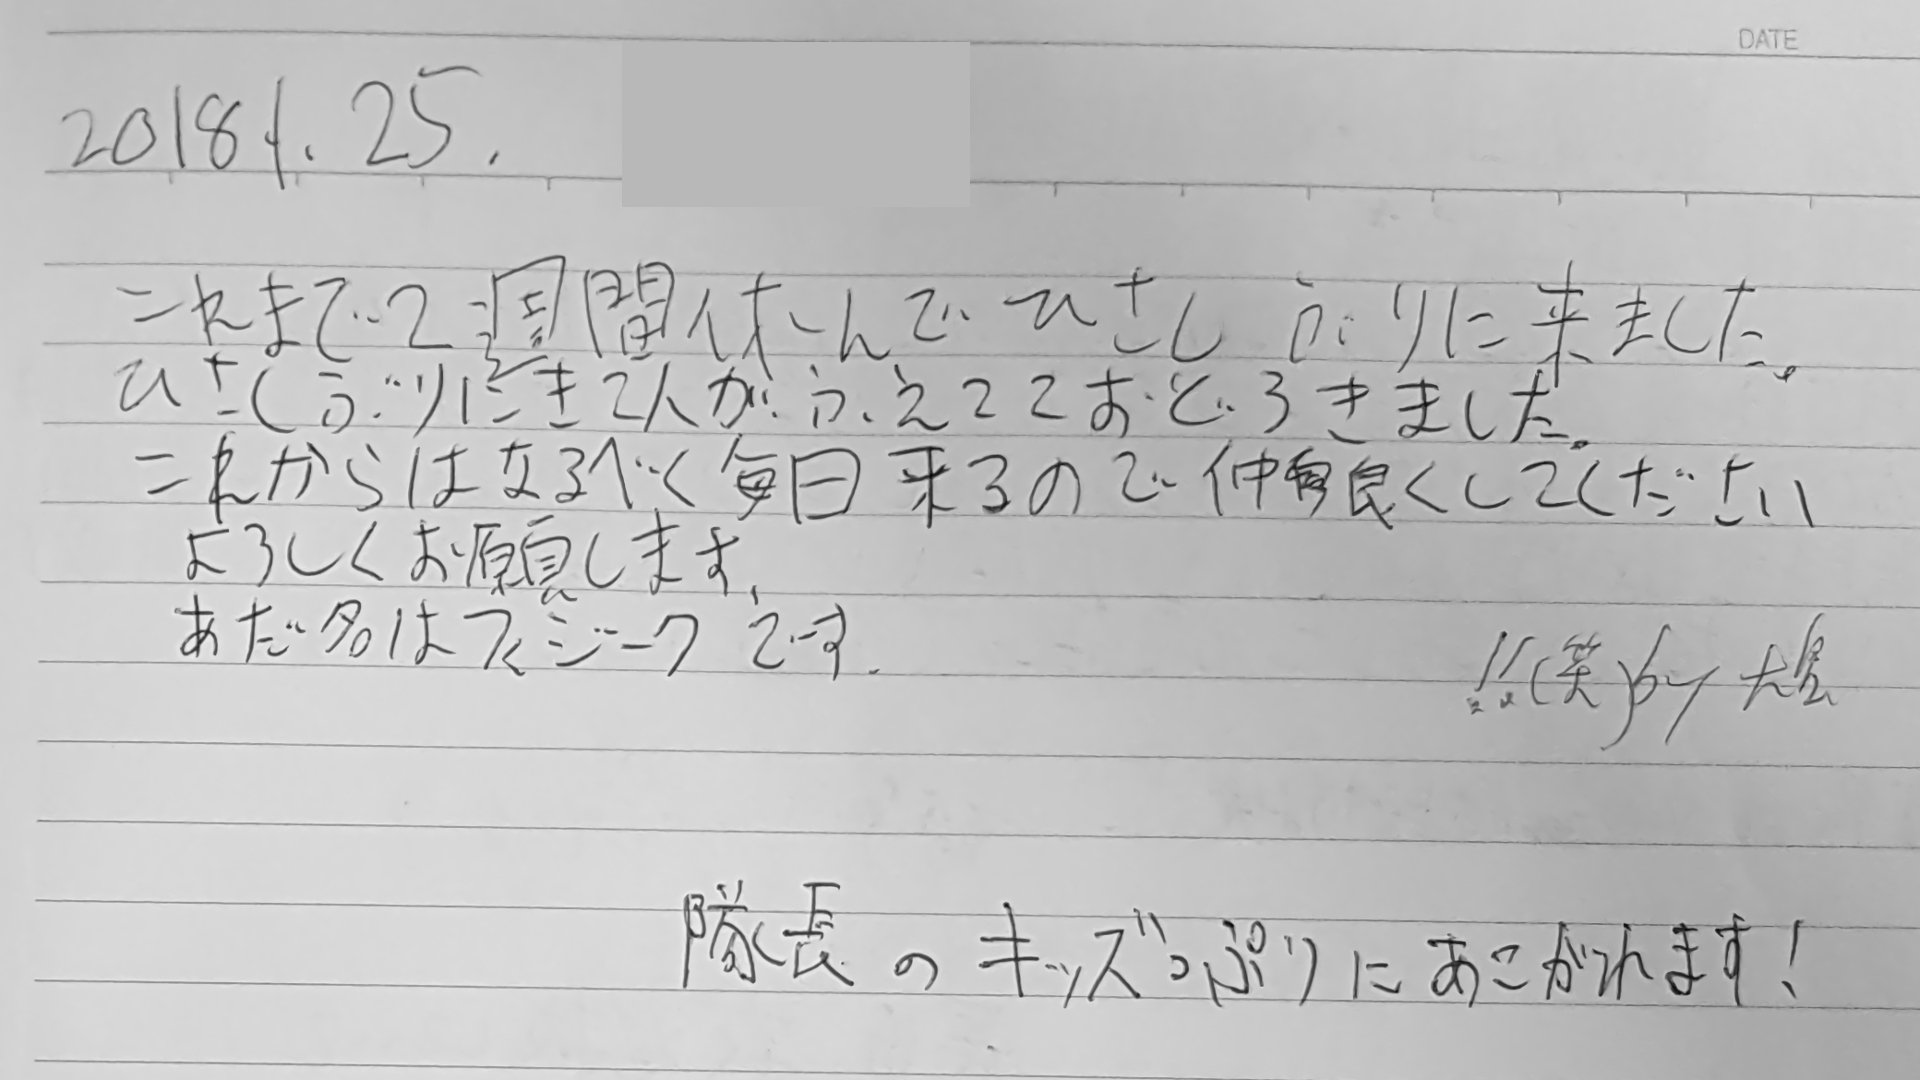 DATE
2018 1. 25.
これまで2週間休んでひさしぶりに来ました。
ひさしぶりにきて人がふえてておどろきました。
これからはなるべく毎日来るので仲良くしてください
よろしくお願します.
あだ名はフィジークです.
!!(笑)by 大島
隊長のキッズっぷりにあこがれます!